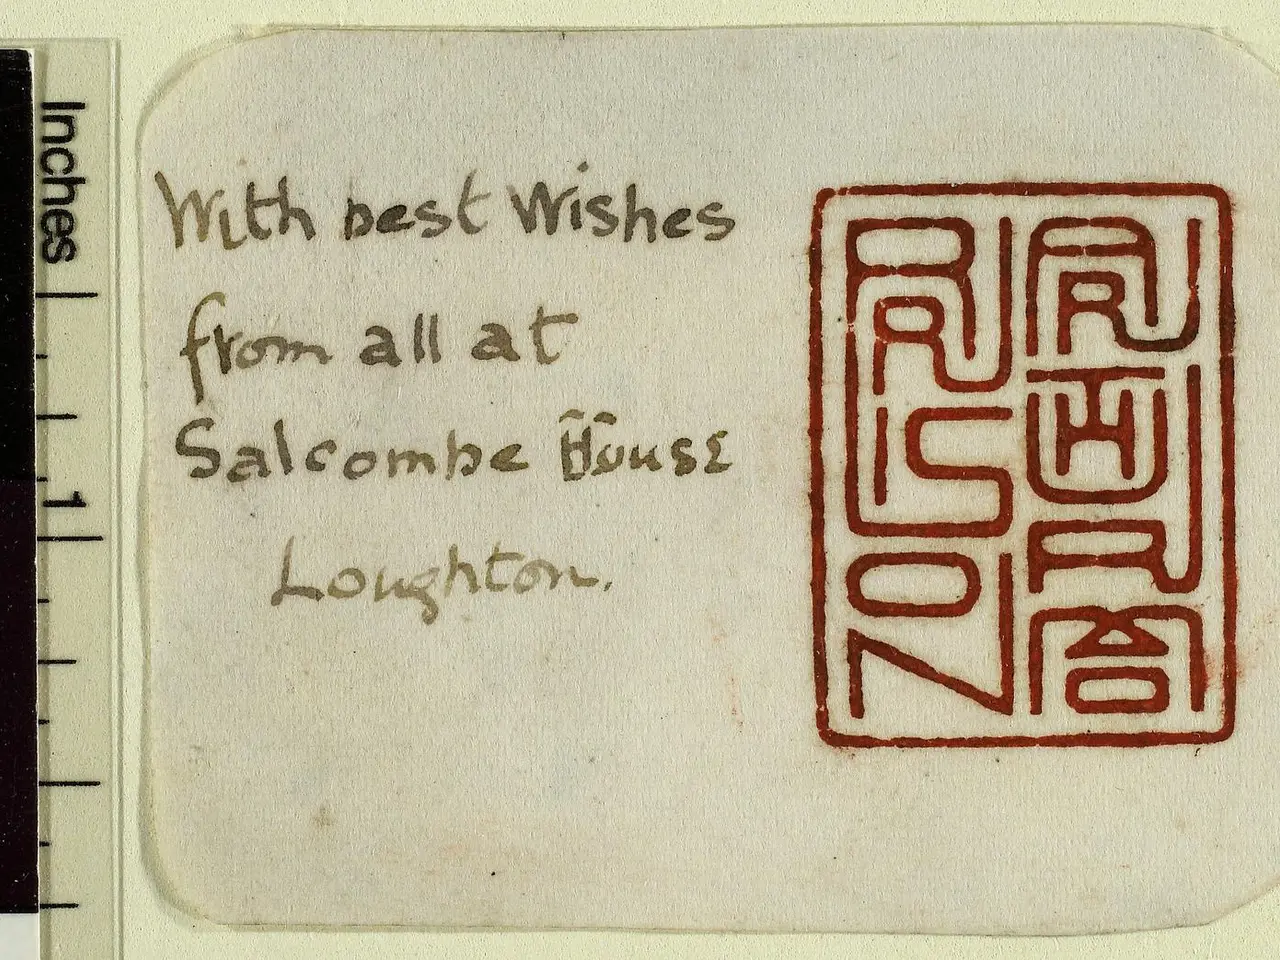 With best Wishes
from all at
Salcombe House
Loughton.
Inches
1